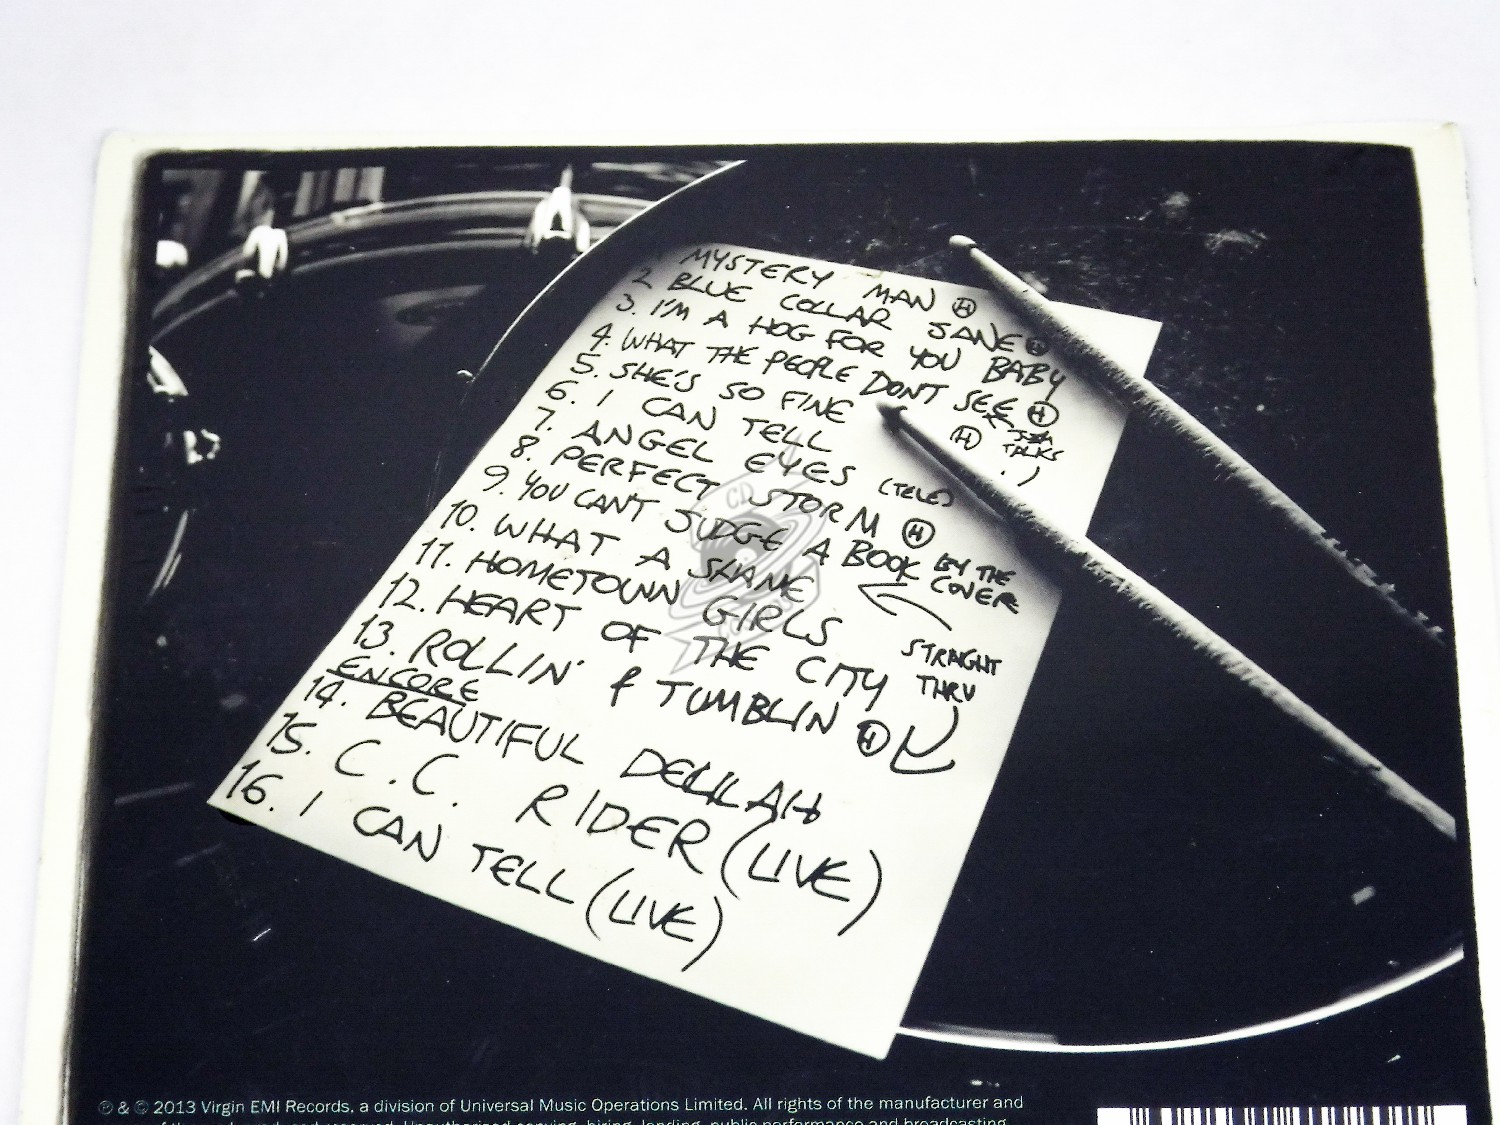 MYSTERY MAN Ⓗ
2 BLUE COLLAR JANE Ⓗ
3. I'M A HOG FOR YOU BABY
4. WHAT THE PEOPLE DON'T SEE Ⓗ
5. SHE'S SO FINE Ⓗ
TALKS
6. I CAN TELL
7. ANGEL EYES (TELE)
8. PERFECT STORM Ⓗ
9. YOU CAN'T JUDGE A BOOK BY THE COVER
10. WHAT A SHAME
11. HOMETOWN GIRLS
STRAIGHT THRU
12. HEART OF THE CITY
13. ROLLIN' & TUMBLIN Ⓗ
ENCORE
14. BEAUTIFUL DELILAH
15. C.C. RIDER (LIVE)
16. I CAN TELL (LIVE)
CD
℗ & © 2013 Virgin EMI Records, a division of Universal Music Operations Limited. All rights of the manufacturer and